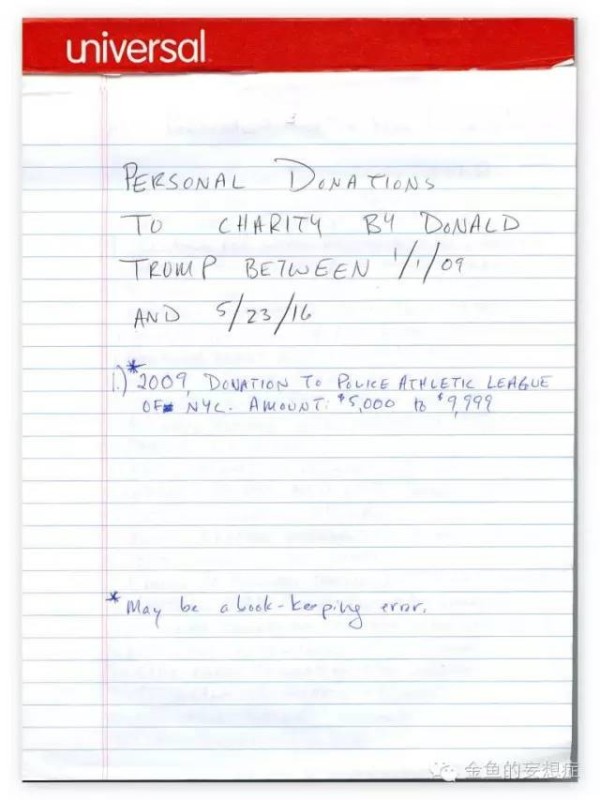 universal
PERSONAL DONATIONS
TO CHARITY BY DONALD
TRUMP BETWEEN 1/1/09
AND 5/23/16
1.)* 2009, DONATION TO POLICE ATHLETIC LEAGUE
OF NYC. AMOUNT: $5,000 to $9,999
* May be a book-keeping error.
金鱼的妄想症